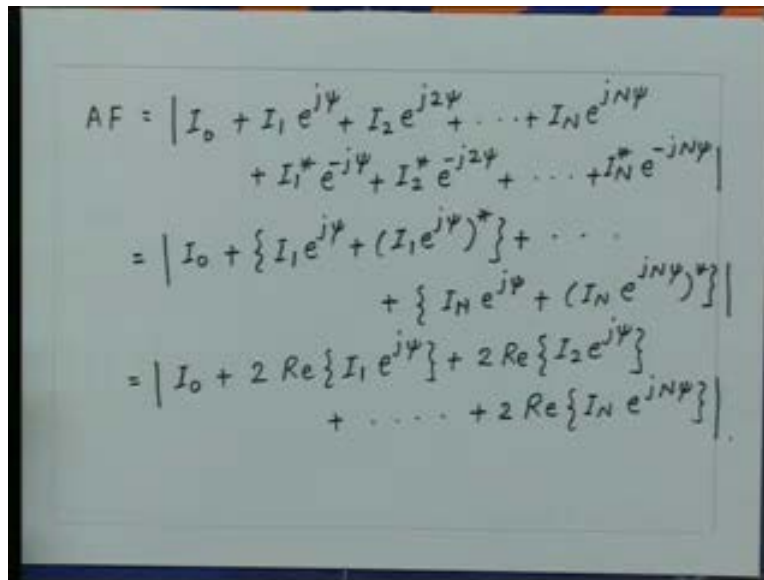 AF = | I₀ + I₁ e^{jψ} + I₂ e^{j2ψ} + · · · + I_N e^{jNψ}
+ I₁* e^{-jψ} + I₂* e^{-j2ψ} + · · · + I_N* e^{-jNψ} |
= | I₀ + { I₁ e^{jψ} + (I₁ e^{jψ})* } + · · ·
+ { I_N e^{jψ} + (I_N e^{jNψ})* } |
= | I₀ + 2 Re{ I₁ e^{jψ} } + 2 Re{ I₂ e^{jψ} }
+ · · · · + 2 Re{ I_N e^{jNψ} } | .